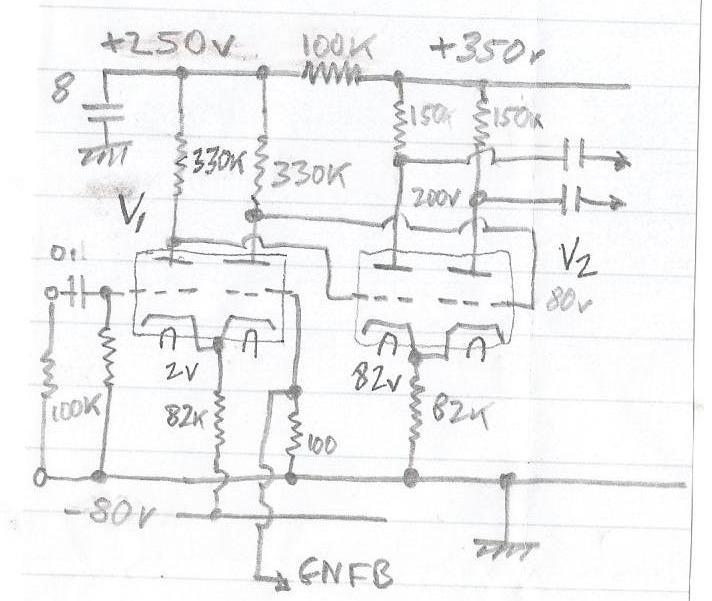 +250v 100K +350v
8
150K 150K
330K 330K
V1 200v
0.1 V2
80v
2v 82v
100K 82K 82K
100
-80v
GNFB